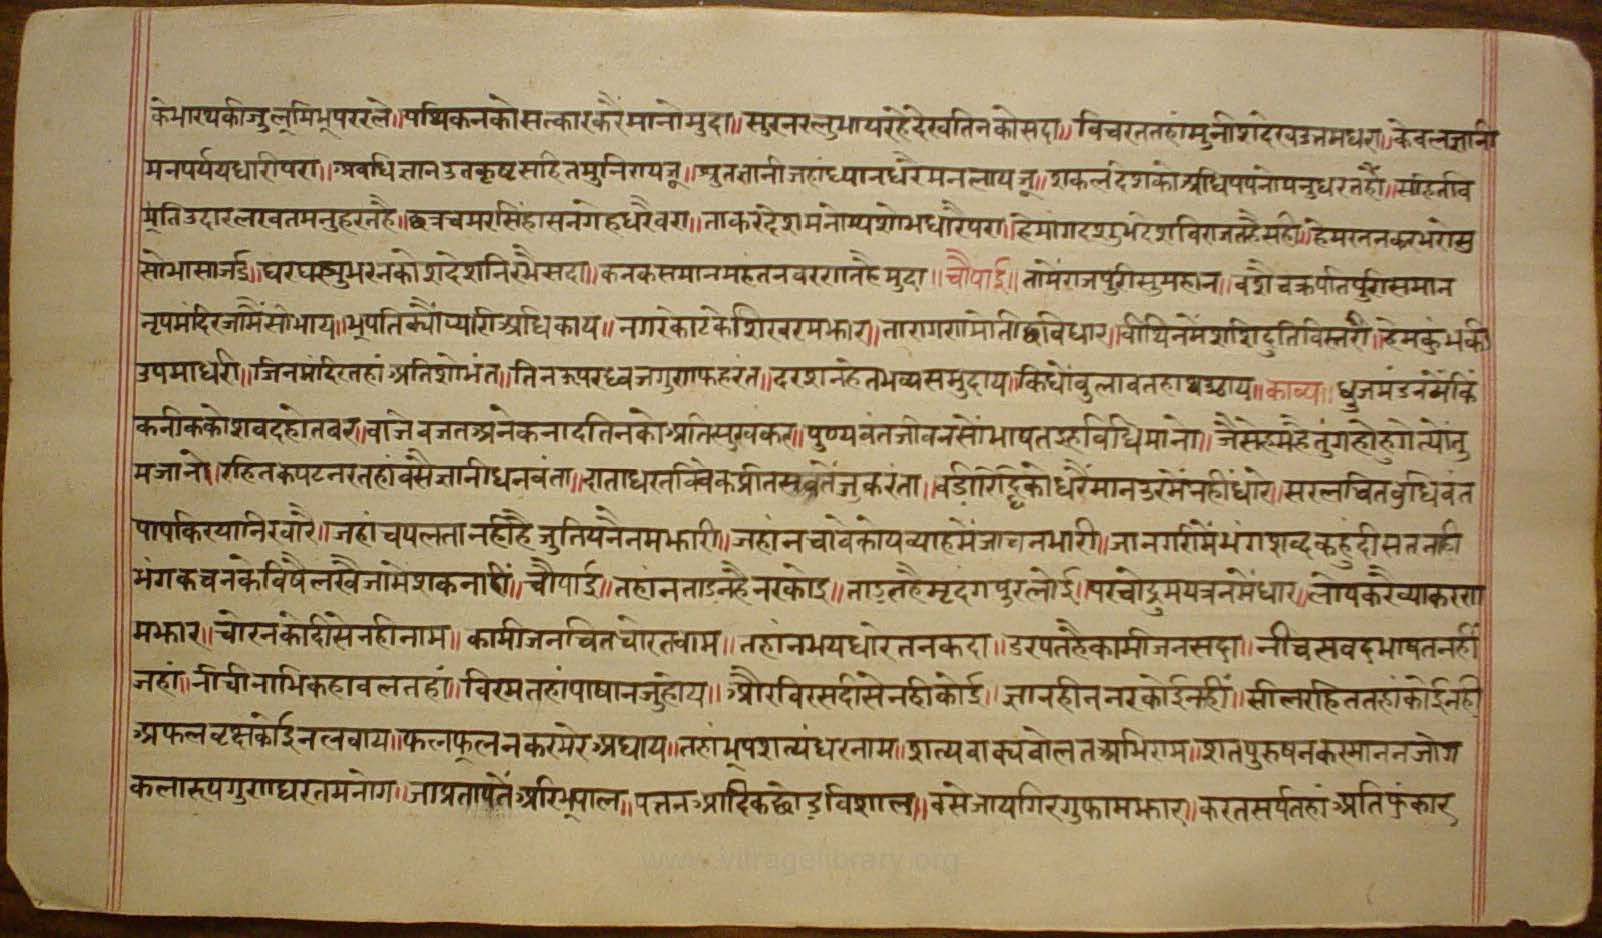 केभारथकीजुलूमिभूपररले॥पथिकनकोसत्कारकरैंमानोमुदा॥सुरनरलुभायरहेदेखतिनकोसदा॥विचरततहांमुनीशदेखउतमधरा॥केवलज्ञानी
मनपर्ययधारीपरा॥अवधिज्ञानउतकृष्टसहितमुनिरायजू॥श्रुतज्ञानीजहांध्यानधरैमनलायजू॥शकलदेशकोअधिपपनोपनुधरतहै॥सहितवि
भूतिउदारलखतमनुहरतहै॥छत्रचमरसिंहासनगेहधरैवरा॥नाकरदेशमनोग्यशोभधारैपरा॥हेमांगदशुभदेशविराजतहैसही॥हेमरतनकरभरोसु
सोभासाजई॥घरघरशुभरनकोशदेशनिरभैसदा॥कनकसमानमहंतनवररानहैमुदा॥चौपाई॥तामेंराजपुरीसुमहान॥वशैचक्रपतिपुरीसमान
नृपमंदिरजामैंसोभाय॥भूपतिक्यौंप्यारीअधिकाय॥नगरकोटकेशिखरमझार॥तारागणमोतीछविधार॥वीथिनमेंशशिदुतिविस्तरी॥हेमकुंभकी
उपमाधरी॥जिनमंदिरतहांअतिशोभंत॥तिनऊपरध्वजगुणफहरंत॥दरशनहेतभव्यसमुदाय॥किधोंवुलावतहाथउठाय॥काव्य॥धुजमंडनमेंकिं
कनीककोशवदहोतवर॥वाजेवजतअनेकनादतिनकोअतिसुखकर॥पुण्यवंतजीवनसोंभाषतइहविधिमानो॥जैसेहमहैतुंगहोहुगेत्योंतु
मजानो॥रहितकपटनरतहांवसैज्ञानीधनवंता॥दाताधरतविवेकप्रीतसवतेंजुकरंता॥वडीरिद्धकोधरैंमानउरमेंनहींधारे॥सरलचितवुधिवंत
पापकिरयानिरवारै॥जहांचपलतानहींहैजुतियनैनमझारी॥जहांनचावेकोयव्याहमेंजाचनभारी॥जानगरीमेंभंगशव्दकहुंदीसतनाही
भंगकचनकेविषैलखैजामेंशकनाहीं॥चौपाई॥तहांनताडनहैनरकोइ॥ताडतहैमृदंगपुरलोई॥परवोद्रुमयत्रनमेंधार॥लोपकरैव्याकरण
मझार॥चोरनकोदीसेनहीनाम॥कामीजनचितचोरतवाम॥तहांनभयधारेतनकदा॥डरपतहैकामीजनसदा॥नीचसवदभाषतनहीं
जहां॥नीचीनाभिकहावलतहां॥विरमतहांपाषानजुंहोय॥औरविरसदीसेनहीकोई॥ज्ञानहीननरकोईनहीं॥सीलरहिततहांकोईनही
अफलवृक्षकोईनलखाय॥फलफूलनकरमेरअघाय॥तहांभूपशत्यंधरनाम॥शत्यवाक्यवोलतअभिराम॥शतपुरुषनकरमाननजोग
कलारूपगुणधरतमनोग॥जाप्रतापतेंअरिभूपाल॥पत्तनआदिकछोडविशाल॥वसेजायगिरगुफामझार॥करतसर्पतहांअतिफुंकार
www.vitragelibrary.org